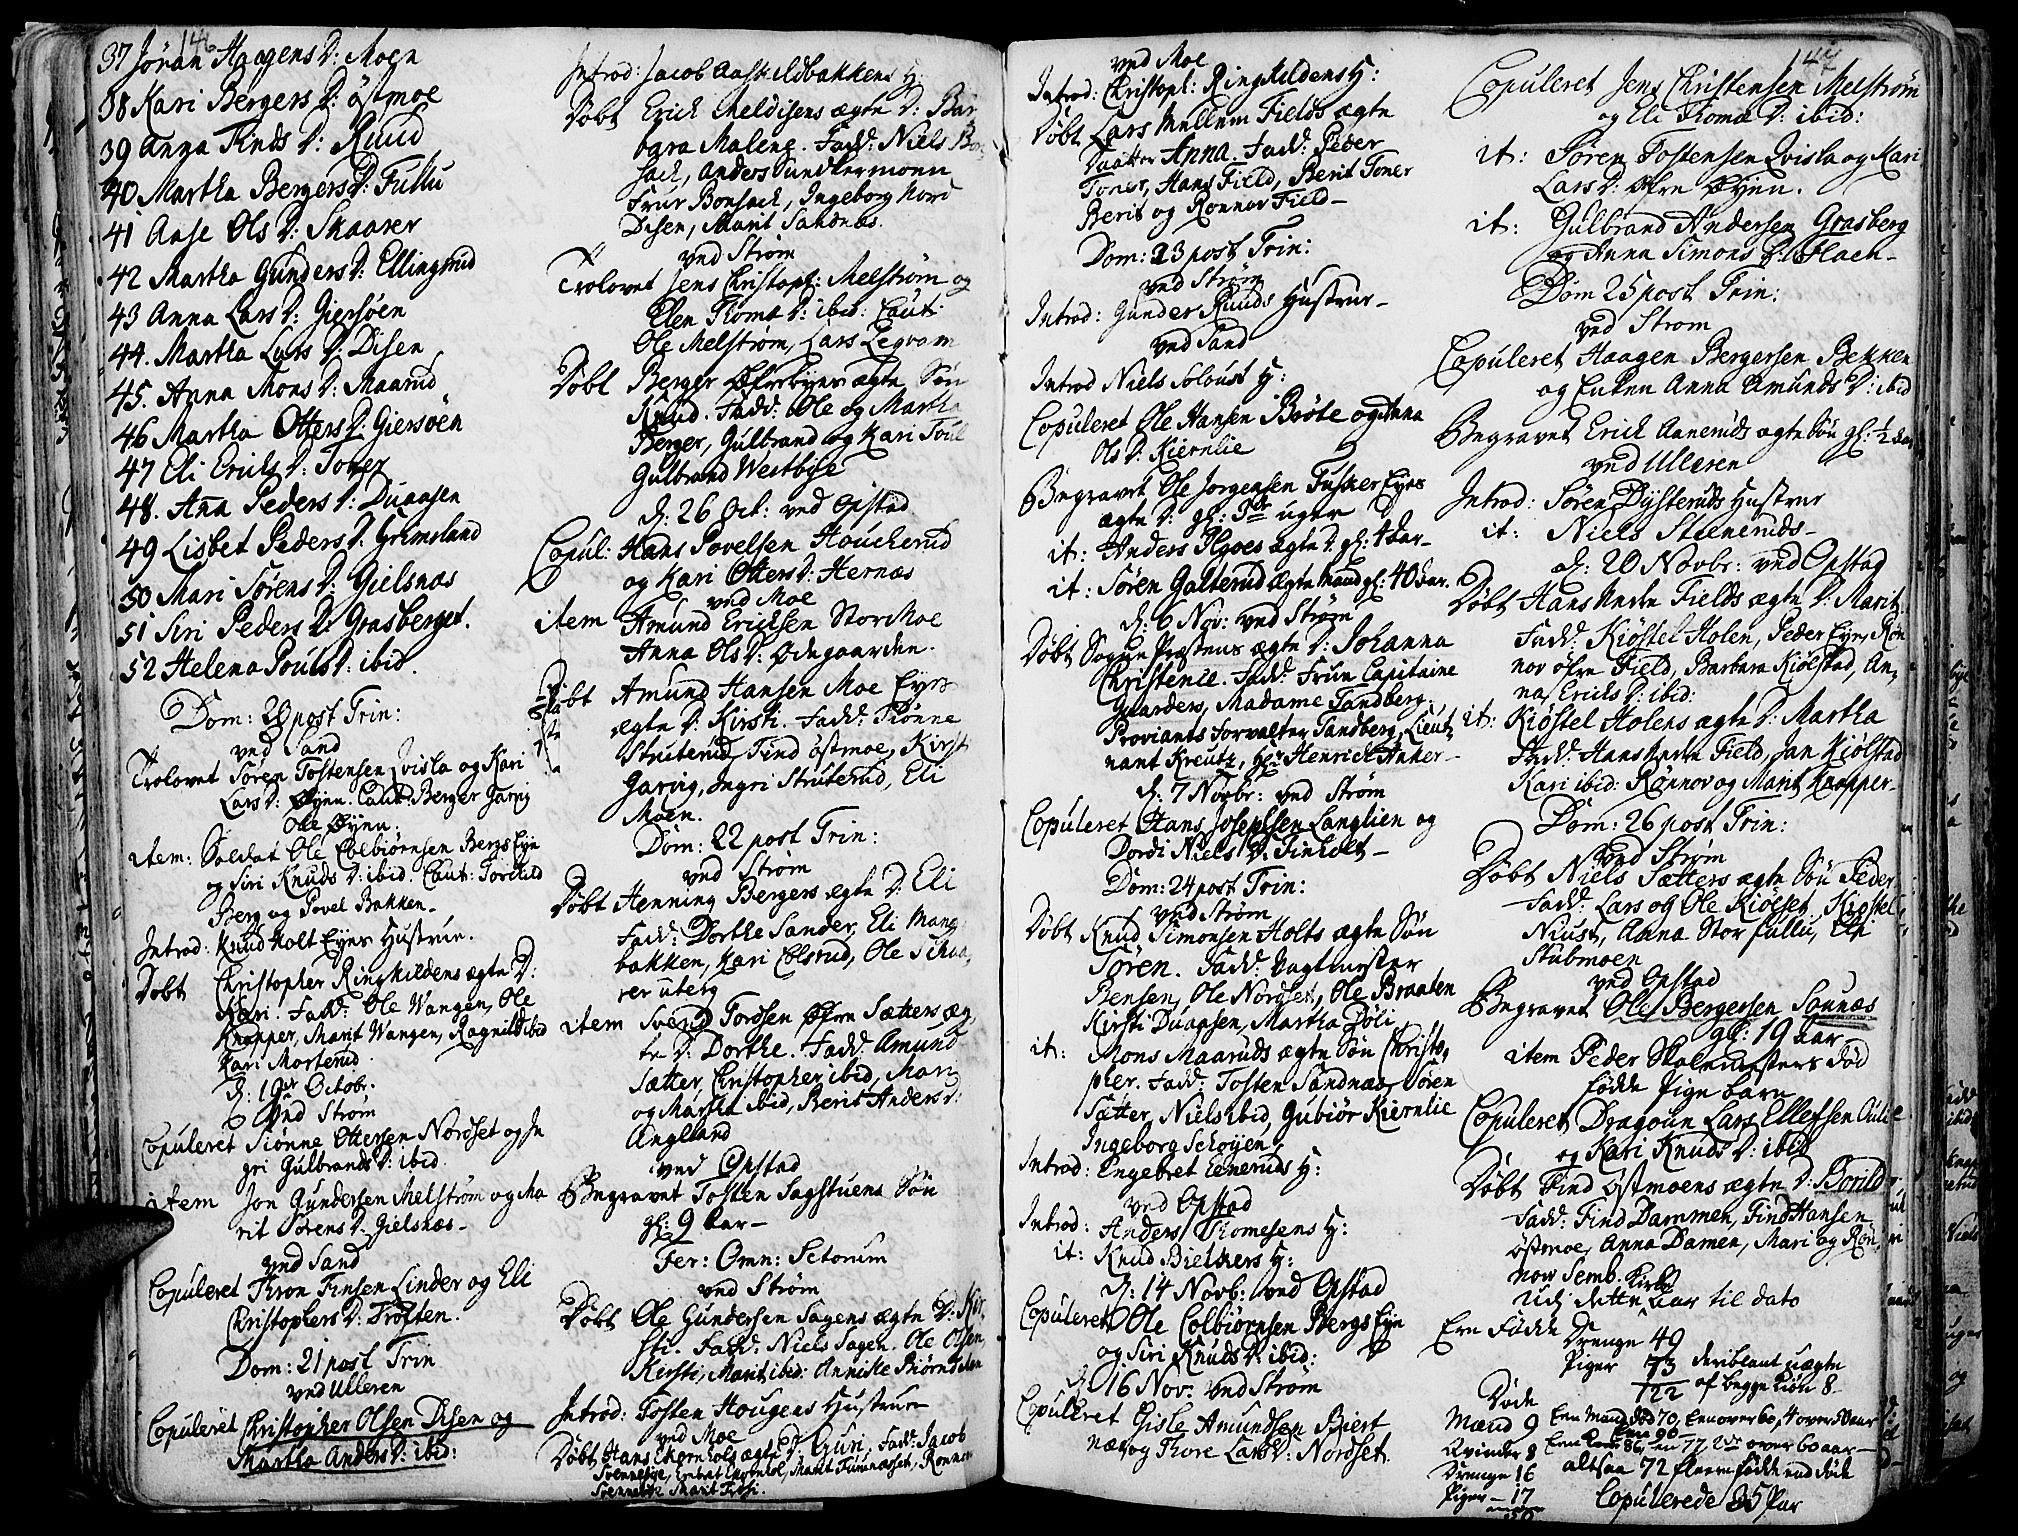 146
37 Jøran Haagens D: Moen
38 Kari Bergers D: Østmoe
39 Anna Finds D: Ruud
40 Martha Bergers D: Fullu
41 Aase Ols D: Skaarer
42 Martha Gunders D: Ellingsrud
43 Anna Lars D: Giersøen
44. Martha Lars D: Disen
45. Anna Mons D: Maarud
46 Martha Otters D: Giersøen
47 Eli Erichs D: Toner
48. Anna Peders D: Duaasen
49 Lisbet Peders D: Grimsland
50 Mari Sørens D: Gielsnæs
51 Siri Peders D: Grasberget.
52 Helena Pouls D: ibid.
Dom: 20 post Trin:
ved Sand
Trolovet Søren Tostensen Qvisla og Kari
Lars D: Øyen. Caut: Berger Garvig
Ole Øyen.
item: Soldat Ole Colbiørnsen Bergs Eye
og Siri Knuds D: ibid. Caut: Torchild
Berg og Povel Bakken.
Introd: Knud Holt Eyes Hustrue.
Døbt Christopher Ringkildens ægte D:
Kari. Fadd: Ole Wangen, Ole
Knapper, Marit Wangen, Ragnild ibid
Kari Morterud.
D. 19de Octobr.
ved Strøm
Copuleret Siønne Ottersen Nordset og In
gri Gulbrands D: ibid.
item Jon Gundersen Melstrøm og Ma
rit Sørens D: Gielsnæs.
ved Sand
Copuleret Thron Finsen Linder og Eli
Christophers D: Trøften.
Dom: 21 post Trin
ved Ulleren
Copuleret Christopher Olsen Disen og
Martha Anders D: ibid:
Introd: Jacob Aaskildbakkens H:
Døbt Erich Meldisens ægte D: Bar
bara Malene. Fadd: Niels Bon
sach, Anders Sundkermoen
Frue Bonsach, Ingeborg Nord
Disen, Marit Sandnæs.
ved Strøm
Trolovet Jens Christoph: Melstrøm og
Elen Thomæ D: ibid: Caut:
Ole Melstrøm, Lars Legvam
Døbt Berger Øfrebyes ægte Søn
Knud. Fadd: Ole og Martha
Berger, Gulbrand og Kari Toul
Gulbrand Westbye
D. 26 Oct: ved Opstad
Copul: Hans Povelsen Houcherud
og Kari Otters D: Hernæs
ved Moe
item Amund Ericksen Stor Moe
Anna Ols D: Ødegaarden.
Døbt Amund Hansen Moe Eyes
ægte D: Kirsti. Fadd: Siønne
Struterud, Find Østmoe, Kirsti
Garvig, Ingri Struterud, Eli
Moen.
Dom: 22 post Trin:
ved Strøm
Døbt Henning Bergers ægte D: Eli
Fadd: Dorthe Sander, Eli Mang
bakken, Kari Eblsrud, Ole Skaa
rer uterg
item Svend Tordsen Øfre Sætters æg
te D: Dorthe. Fadd: Amund
Sætter, Christopher ibid, Mari
og Martha ibid, Berit Anders D:
Angelland
ved Opstad
Begravet Tosten Sagstuens Søn
gl: 9 Aar
Fer: Omn: Sctorum
ved Strøm
Døbt Ole Gundersen Sagens ægte D: Kir
sti. Fadd: Niels Sagen, Ole Olsen,
Kirsti, Marit ibid: Annike Biørnstelen
Introd: Tosten Hougens Hustrue
ved Moe
Døbt Hans Ekornholts ægte D: Guri, Fadd: Jacob
Svennebye, Engebret Ekornhol, Marit Tunnasset, Ronnov
Svennebye Marit Frøsi.
147
ved Moe
Introd: Christoph: Ringkildens H:
Døbt Lars Mellem Fields ægte
Daatter Anna. Fadd: Peder
Toner, Hans Field, Berit Toner
Berit og Rønnov Field
Dom: 23 post Trin:
ved Strøm
Introd: Gunder Ruuds Hustrue
ved Sand
Introd Niels Soloust H:
Copuleret Ole Hansen Brøte og Anna
Ols D: Kiernlie
Begravet Ole Jorgensen Fusker Eyes
ægte D: gl: 3de uger
it: Anders Ilgoes ægte D: gl: 4 Aar
it: Søren Galterud ægte Mand gl: 40 Aar.
D. 6 Nov: ved Strøm
Døbt Sogne Præstens ægte D: Johanna
Christence. Fadd: Frue Capitaine
Gaarders, Madame Tandberg
Proviants Forvalter Tandberg, Lieut
nant Kreutz, Hr Henrich Anker
D. 7 Novbr: ved Strøm
Copuleret Hans Josephsen Langlien og
Dordi Niels D: Tinholt
Dom: 24 post Trin:
ved Strøm
Døbt Knud Simonsen Holts ægte Søn
Søren. Fadd: Vagtmester
Bensen, Ole Nordset, Ole Braaten
Kirsti Duaasen, Martha Døli
it: Mons Maaruds ægte Søn Christo
pher. Fadd: Tosten Sandnæs, Søren
Sætter, Niels ibid, Gubiør Kiernlie
Ingeborg Schøyen.
Introd: Engebret Eeneruds H:
ved Opstad
Introd: Anders Thomesens H:
it: Knud Bielkers H:
D: 14 Novb: ved Opstad
Copuleret Ole Colbiørnsen Bergs Eye
og Siri Knuds D: ibid:
D. 16 Nov: ved Strøm
Copuleret Gisle Amundsen Biert
næs og Thore Lars D: Nordset.
Copuleret Jens Christensen Melstrøm
og Eli Thomæ D: ibid:
it: Søren Tostensen Qvisla og Kari
Lars D: Øfre Øyen.
it: Gulbrand Andersen Grasberg
og Anna Simons D: Hach
Dom 25 post Trin:
ved Strøm
Copuleret Haagen Bergersen Bekken
og Enken Anna Amunds D: ibid
Begravet Erich Aaneruds ægte Søn gl: 1/2 Aar
ved Ulleren
Introd: Søren Dysteruds Hustrue
it: Niels Steneruds
d. 20 Novbr: ved Opstad
Døbt Hans Nedre Fields ægte D: Marit
Fadd: Kiøstel Holen, Peder Eye, Røn
nov Øfre Field, Barbara Kiølstad, An
na Erichs D: ibid:
it: Kiøstel Holens ægte D: Martha
Fadd: Hans Nedre Field, Jan Kiølstad
Kari ibid: Rønnov og Marit Knapper
Dom: 26 post Trin:
ved Strøm
Døbt Niels Sætters ægte Søn Peder
Fadd: Lars og Ole Kiølset, Kiøstel
Niust, Anna Stor Fullu, Eli
Stubmoen
ved Opstad
Begravet Ole Bergersen Sounæs
gl: 19 Aar
item Peder Skolemesters død
fødde Pige barn
Copuleret Dragoun Lars Ellefsen Aulie
og Kari Knuds D: ibid
Døbt Find Østmoens ægte D: Borild
Fadd: Find Dammen, Find Hansen
Østmoe, Anna Damen, Mari og Røn
nov Semb.
Udj dette Kirke Aar til dato
Ere Fødde Drenge 49
Piger 73 deriblant uægte
122 af begge Kiøn 8
Døde
Mænd 9 Een Mand død 70, Een over 60, 4 over 50 aar
Qvinder 8 Een 90 Een 86, en 77, 2de over 60 aar
Drenge 16 altsaa 72 fleere fødde end døde
Piger 17
50
Copulerede 35 Par